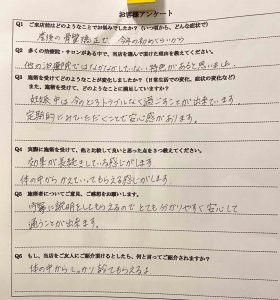 お客様アンケート
Q1 ご来店前はどのようなことでお悩みでしたか?(いつ頃から、どんな症状で)
産後の骨盤矯正で、今年の初めくらいから
Q2 多くの治療院・サロンがある中で、当店を選んで頂けた理由を教えてください。
他の治療院ではなかなかしていない特色があると思いました。
Q3 施術を受けてどのようなことが変りましたか?(日常生活での変化、症状の変化など)
また、施術を受けて、どのようなことに満足していますか?
妊娠中は今のところトラブルなく過ごすことが出来ています
定期的にみていただくことで安心感があります。
Q4 実際に施術を受けて、他と比較して良いと思った点を3つ教えてください。
効果が長続きしている感じがします
体の中からかえていってもらえる感じがします。
Q5 施術者についてご意見、ご感想をお願いします。
丁寧に説明をしてもらえるのでとても分かりやすく安心して
通うことが出来ます。
Q6 もし、当店をご友人にご紹介頂けるとしたら、何と言ってご紹介されますか?
体の中からしっかり診てもらえるよ